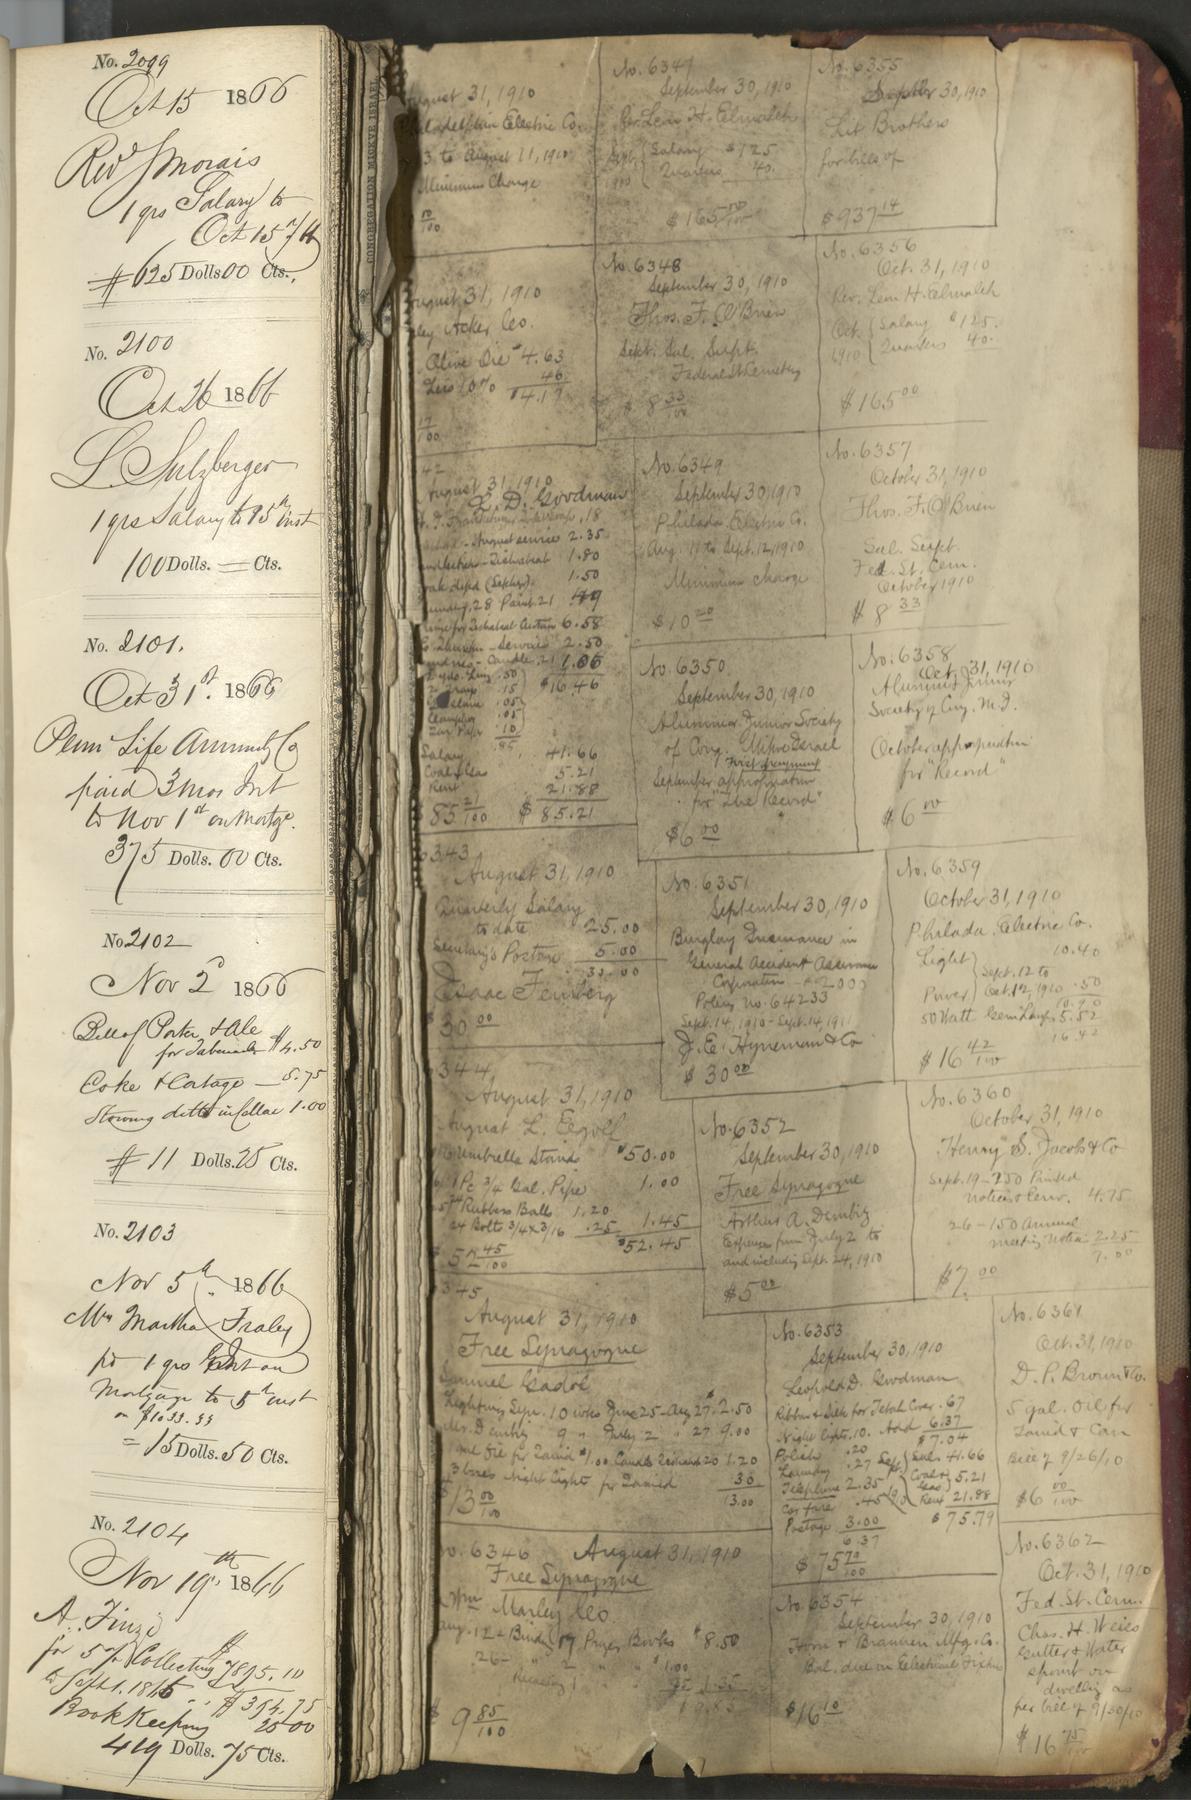 No. 2099
Oct 15 1866
Revd S Morais
1 qrs Salary to
Oct 15th /66
$625 Dolls 00 Cts.
No. 2100
Oct 26 1866
L. Sulzberger
1 qrs Salary to 15th inst
100 Dolls. — Cts.
No. 2101.
Oct 31st. 1866
Penn Life Annuity Co
paid 3 mos Int
to Nov 1st on Mortge.
375 Dolls. 00 Cts.
No. 2102
Nov 2d 1866
Bill of Porter & Ale
for Tabernacle $4.50
Coke & Cartage — 5.75
Stowing ditto in Cellar 1.00
$11 Dolls. 25 Cts.
No. 2103
Nov 5th 1866
Mrs Martha Fraley
pd 1 qrs Int on
Mortgage to 5th inst
on $1033.33
= 15 Dolls. 50 Cts.
No. 2104
Nov 19th 1866
A. Finzi
for 5 pr Collecting $7895.10
to Sept 1. 1866 .. $394.75
Book Keeping 25 00
419 Dolls. 75 Cts.
CONGREGATION MICKVE ISRAEL
August 31, 1910
Philadelphia Electric Co.
3 to August 11, 1910
Minimum Charge
00/100
August 31, 1910
ley Acker Co.
Olive Oil $4.63
Less 10% 46
$4.17
17/100
42
August 31, 1910
L. D. Goodman
.18
August service 2.35
1.80
1.50
28 Paint. 21 .49
6.58
Service 2.50
Candle .21 1.06
.50 $16.46
Soap .15
.05
Camphor .05
.10
.85
Salary 41.66
Coal & Gas 5.21
Rent 21.88
$85 21/100 $85.21
6343
August 31, 1910
Quarterly Salary
to date 25.00
Secretary's Postage 5.00
30.00
Isaac Feinberg
$30 00
344
August 31, 1910
August L. Eegolf
Umbrella Stand $50.00
1 Pc 3/4 Gal. Pipe 1.00
Rubber Balls 1.20
24 Bolts 3/4 x 3/16 .25 1.45
$52.45
$52 45/100
345
August 31, 1910
Free Synagogue
Samuel Gadol
Lighting Sepr. 10 wks June 25 - Aug 27. 2.50
Mr. Dembitz 9 " July 2 " 27 9.00
1 gal Oil for Tamid $1.00 Candles 20 1.20
3 boxes Night Light for Tamid .30
13.00
$13 00/100
No. 6346 August 31, 1910
Free Synagogue
Wm Marley Co.
Aug. 12 - Binding 17 Prayer Books $8.50
26 - " 2 " " $1.00
1 " " .35 1.35
9.85
$9 85/100
No. 6347
September 30, 1910
Rev. Leon H. Elmaleh
Sept. Salary $125
1910 Quarters 40.
$165 00/100
No. 6348
September 30, 1910
Thos. F. O'Brien
Sept. Sal. Supt.
Federal St Cemetery
$8 33/100
No. 6349
September 30, 1910
Philada. Electric Co.
Aug. 11 to Sept. 12, 1910
Minimum charge
$10 00
No. 6350
September 30, 1910
Alumnior Junior Society
of Cong. Mikve Israel
First
September appropriation
for "The Record"
$6 00
No. 6351
September 30, 1910
Burglary Insurance in
General Accident Assurance
Corporation - $2000
Policy no. 64233
Sept. 14, 1910 - Sept. 14, 1911
J. E. Hyneman & Co
$30 00
No. 6352
September 30, 1910
Free Synagogue
Arthur A. Dembitz
Expenses from July 2 to
and including Sept. 24, 1910
$5 00
No. 6353
September 30, 1910
Leopold D. Goodman
Ribbon & Silk for Tebah Cover .67
Night Lights .10. Add 6.37
$7.04
Polish .20
Laundry .27 Sept Sal. 41.66
Telephone 2.35 Coal & Gas 5.21
Car fare .45 Rent 21.88
Postage 3.00 $75.79
6.37
$75 79/100
No. 6354
September 30, 1910
Horn & Brannen Mfg. Co.
Bal. due on Electrical Fixtures
$16 10
No. 6355
September 30, 1910
Lit Brothers
for bills of
$937 14
No. 6356
Oct. 31, 1910
Rev. Leon H. Elmaleh
Oct. Salary $125.
1910 Quarters 40.
$165 00
No. 6357
October 31, 1910
Thos. F. O'Brien
Sal. Supt.
Fed. St. Cem.
October 1910
$8 33
No. 6358
Oct. 31, 1910
Alumnior Junior
Society of Cong. M. I.
October appropriation
for "Record"
$6 00
No. 6359
October 31, 1910
Philada. Electric Co.
Light 10.40
Sept. 12 to
Power Oct. 12, 1910 .50
10.90
50 Watt Gem Lamps 5.52
16.42
$16 42/100
No. 6360
October 31, 1910
Henry S. Jacobs & Co
Sept. 19 - 250 Printed
notices & Env. 4.75
26 - 150 Annual
meeting Notice 2.25
7.00
$7.00
No. 6361
Oct. 31, 1910
D. P. Brown & Co.
5 gal. Oil for
Tamid & Can
Bill of 9/26/10
$6 00/100
No. 6362
Oct. 31, 1910
Fed. St. Cem.
Chas. H. Weiss
Gutter & Water
spout on
dwelling as
per bill of 9/30/10
$16 75/100